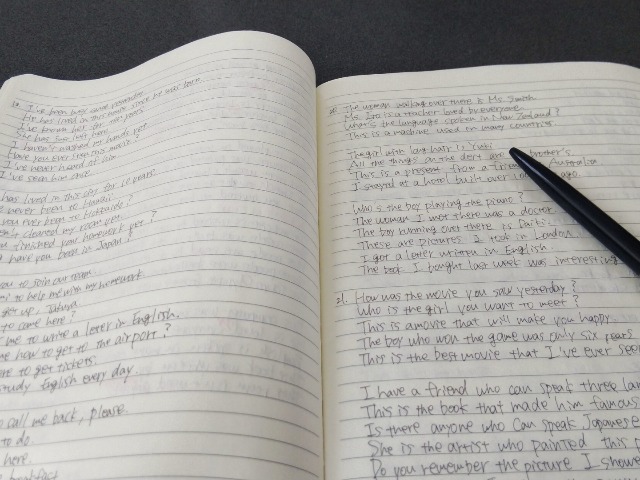 I've been busy since yesterday.
He has lived in this house since he was born.
I've known her for ten years.
She has lost her
I haven't washed my hands yet.
Have you ever seen this movie?
I've never heard it
I've seen him once.
has lived in this city for 10 years
never been to Hawaii.
you ever been to Hokkaido?
cleaned my room yet.
finished your homework yet?
have you been in Japan?
you to join our team.
to help me with my homework.
get up,
to come here?
me to write a leter in English.
me how to get to the airport?
to get tickets.
study English every day.
call me back, please.
to do.
here.
breakfast
The woman walking over there is Ms. Smith
Ms. Ito is a teacher loved by everyone.
What's the language spoken in New Zealand?
This is a machine used in many countries
The girl with long hair is Yuki
All the things on the desk are brother's
This is a present from a Australia
I stayed at a hotel built over ago.
Who's the boy playing the piano?
The woman I met there was a doctor
The boy running over there is
These are pictures I took in London
I got a leter written in English.
The book I bought last week was interesting
21. How was the movie you saw yesterday?
Who is the girl you want to meet?
This is a movie that will make you happy.
The boy who won the game was only six years
This is the best movie that I've ever see
I have a friend who can speak three la
This is the book that made him famous
Is there anyone who can speak Japanese
She is the artist who painted this
Do you remember the picture I showe